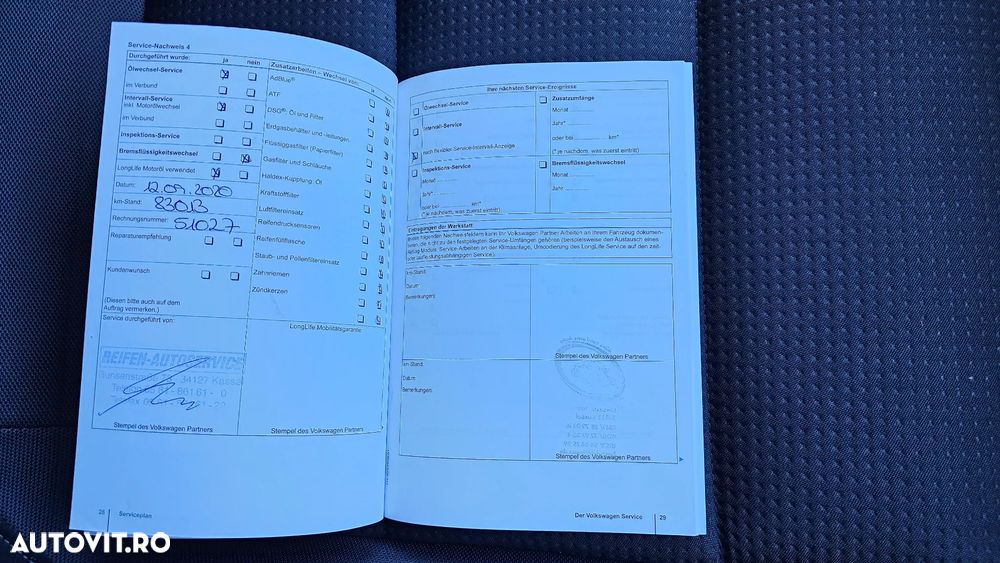 Service-Nachweis 4
Durchgeführt wurde: ja nein
Ölwechsel-Service
im Verbund
Intervall-Service
inkl. Motorölwechsel
im Verbund
Inspektions-Service
Bremsflüssigkeitswechsel
LongLife Motoröl verwendet
Datum: 12.09.2020
km-Stand: 83013
Rechnungsnummer: 51027
Reparaturempfehlung
Kundenwunsch
(Diesen bitte auch auf dem
Auftrag vermerken.)
Service durchgeführt von:
REIFEN-AUTOSERVICE
34127 Kassel
Stempel des Volkswagen Partners
Zusatzarbeiten – Wechsel von: ja
AdBlue®
ATF
DSG®: Öl und Filter
Erdgasbehälter und -leitungen
Flüssiggasfilter (Papierfilter)
Gasfilter und Schläuche
Haldex-Kupplung: Öl
Kraftstofffilter
Luftfiltereinsatz
Reifendrucksensoren
Reifenfüllflasche
Staub- und Pollenfiltereinsatz
Zahnriemen
Zündkerzen
LongLife Mobilitätsgarantie
Stempel des Volkswagen Partners
28 Serviceplan
Ihre nächsten Service-Ereignisse
Ölwechsel-Service
Intervall-Service
nach flexibler Service-Intervall-Anzeige
Inspektions-Service
Monat
Jahr*
oder bei km*
(* je nachdem, was zuerst eintritt)
Zusatzumfänge
Monat
Jahr*
oder bei km*
(* je nachdem, was zuerst eintritt)
Bremsflüssigkeitswechsel
Monat
Jahr
Eintragungen der Werkstatt
In den folgenden Nachweisfeldern kann Ihr Volkswagen Partner Arbeiten an Ihrem Fahrzeug dokumen-
tieren, die nicht zu den festgelegten Service-Umfängen gehören (beispielsweise den Austausch eines
Airbag-Moduls, Service-Arbeiten an der Klimaanlage, Umcodierung des LongLife Service auf den zeit-
oder laufleistungsabhängigen Service).
km-Stand:
Datum:
Bemerkungen:
Stempel des Volkswagen Partners
km-Stand:
Datum:
Bemerkungen:
Stempel des Volkswagen Partners
Der Volkswagen Service 29
AUTOVIT.RO